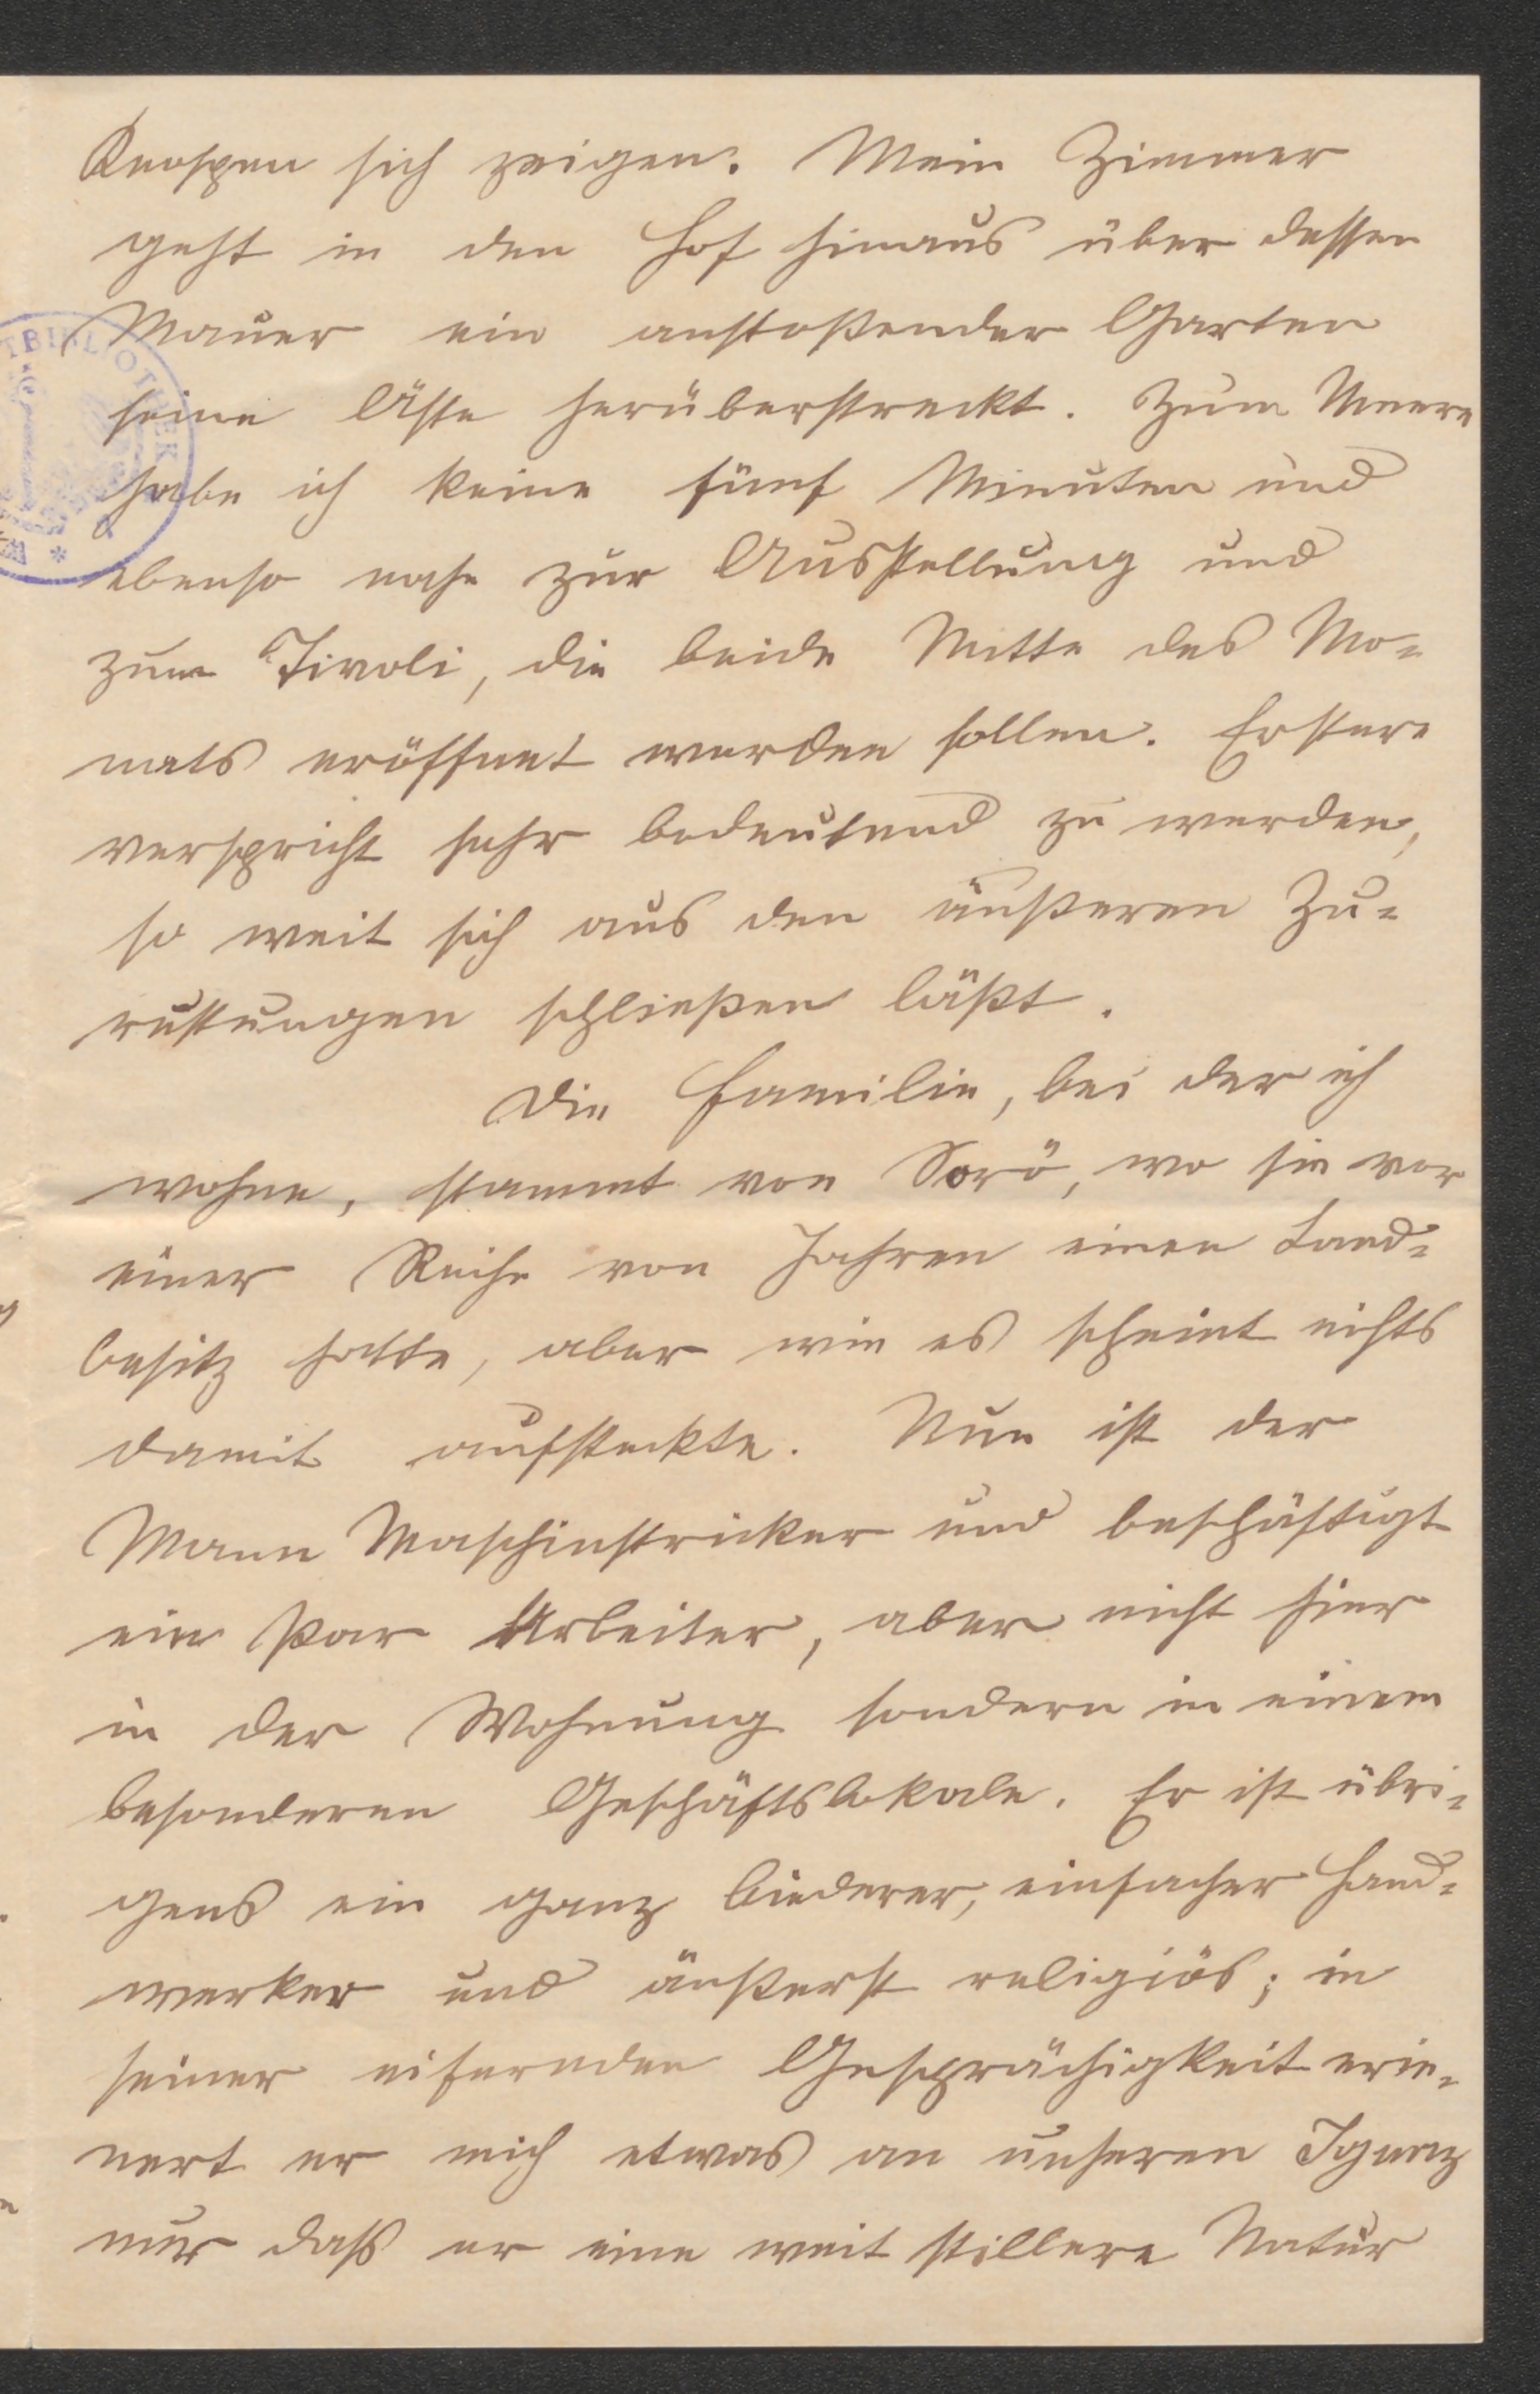 Knospen sich zeigen. Mein Zimmer
geht in den Hof hinaus über dessen
Mauer ein anstoßender Garten
seine Äste herüberstreckt. Zum Meere
habe ich keine fünf Minuten und
ebenso nahe zur Ausstellung und
zum Tivoli, die beide Mitte des Mo-
nats eröffnet werden sollen. Erstere
verspricht sehr bedeutend zu werden,
so weit sich aus den äußeren Zu-
rustungen schließen läßt.
Die Familie, bei der ich
wohne, stammt von Sorö, wo sie vor
einer Reihe von Jahren einen Land-
besitz hatte, aber wie es scheint nichts
damit aufsteckte. Nun ist der
Mann Maschinstricker und beschäftigt
ein Par Arbeiter, aber nicht hier
in der Wohnung sondern in einem
besonderen Geschäftslokale. Er ist übri-
gens ein ganz biederer, einfacher Hand-
werker und äußerst religiös; in
seiner eifernden Gesprächigkeit erin-
nert er mich etwas an unseren Ignaz
nur daß er eine weit stillere Natur